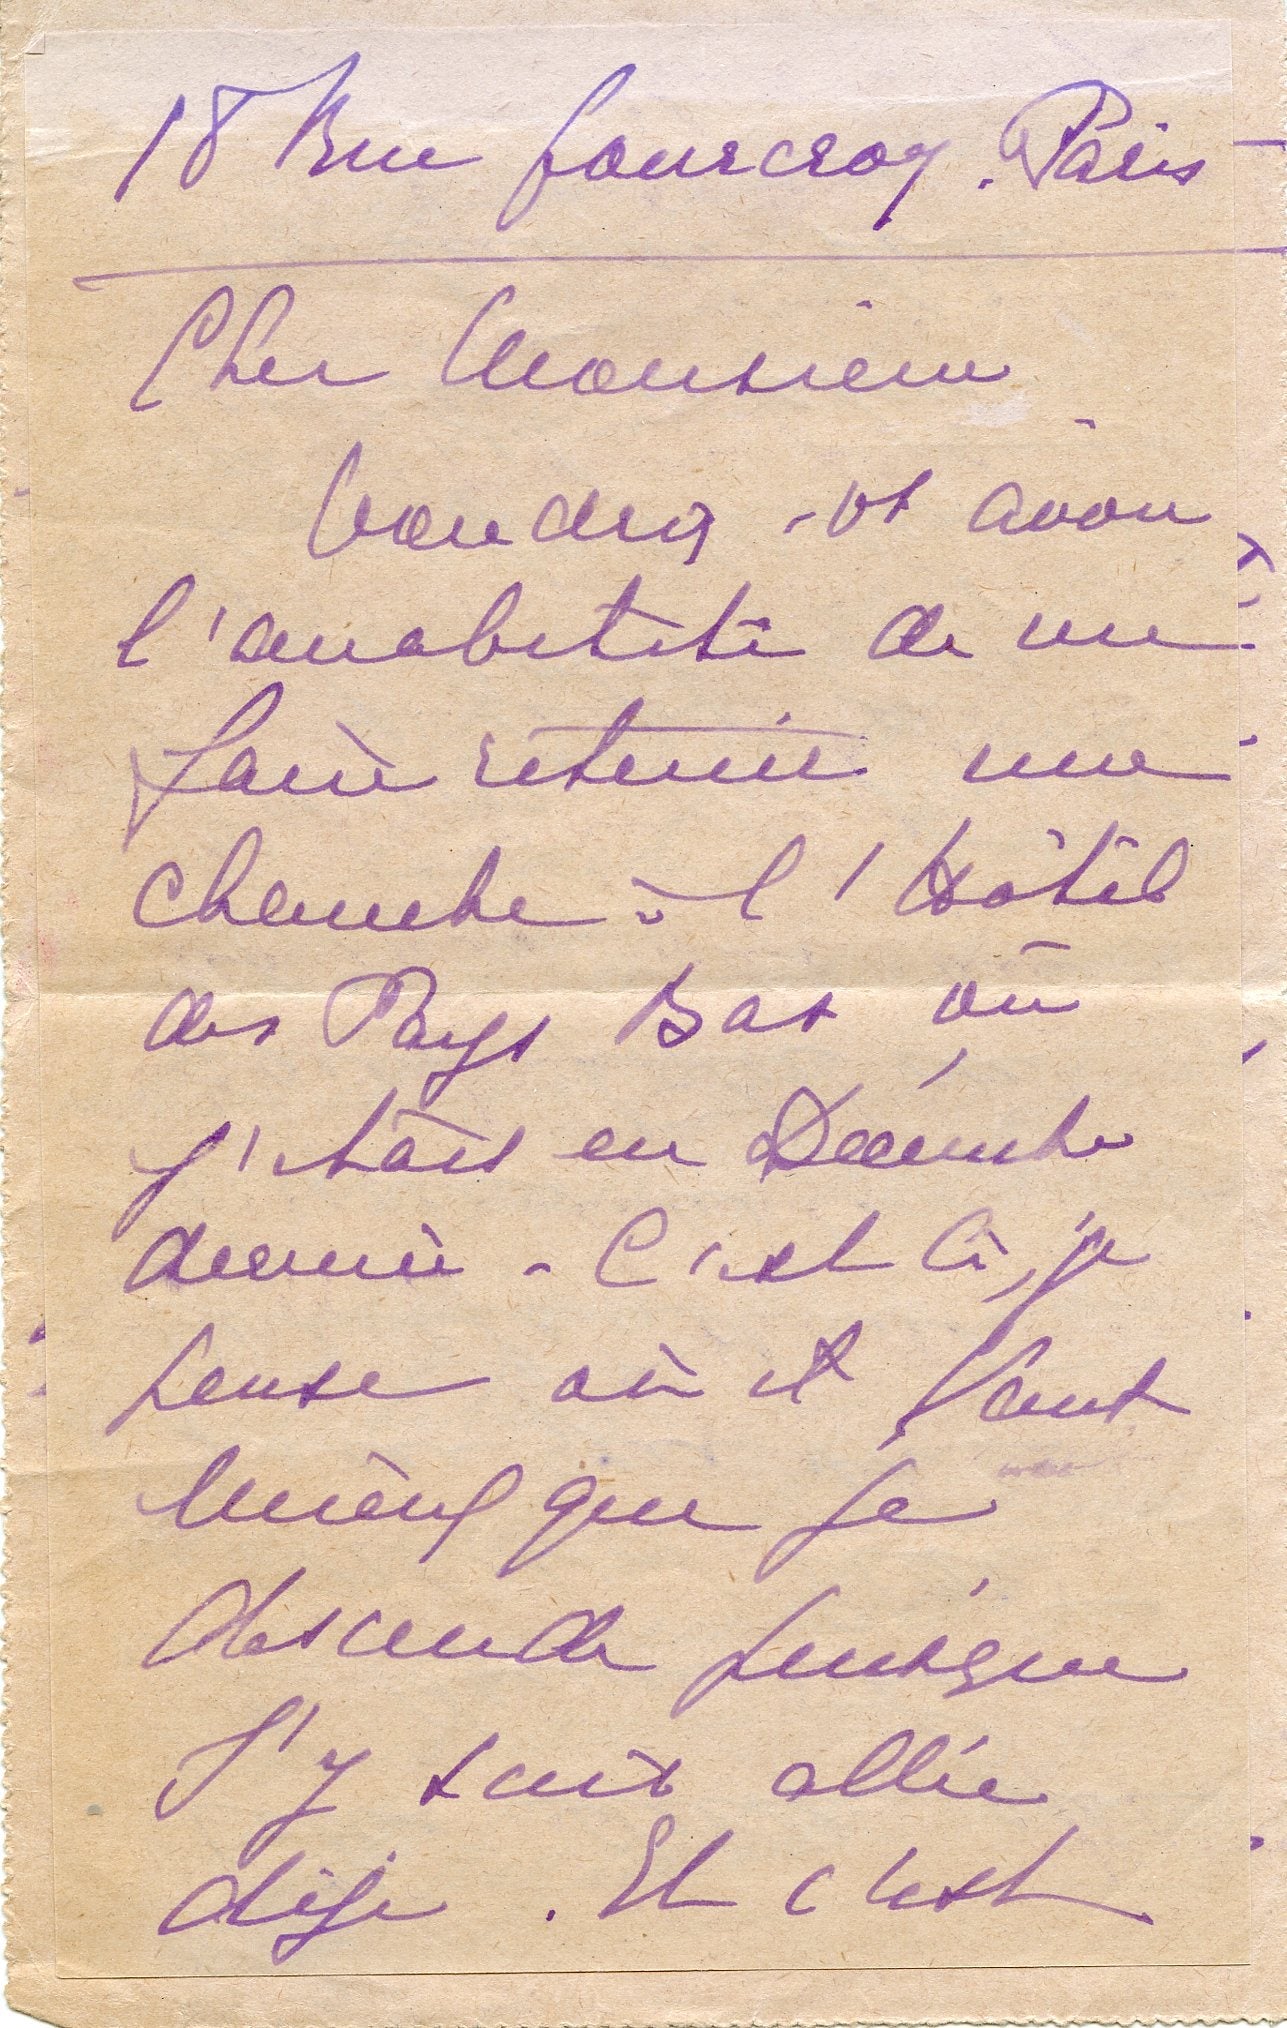 18 Rue fourcroy. Paris
Cher Monsieur
Voudrez-vs avoir
l'amabilité de me
faire retenir une
chambre à l'Hôtel
des Pays Bas où
j'étais en Décembre
dernier - C'est là, je
pense où il vaut
mieux que je
descende puisque
j'y suis allée
déjà. Et c'est